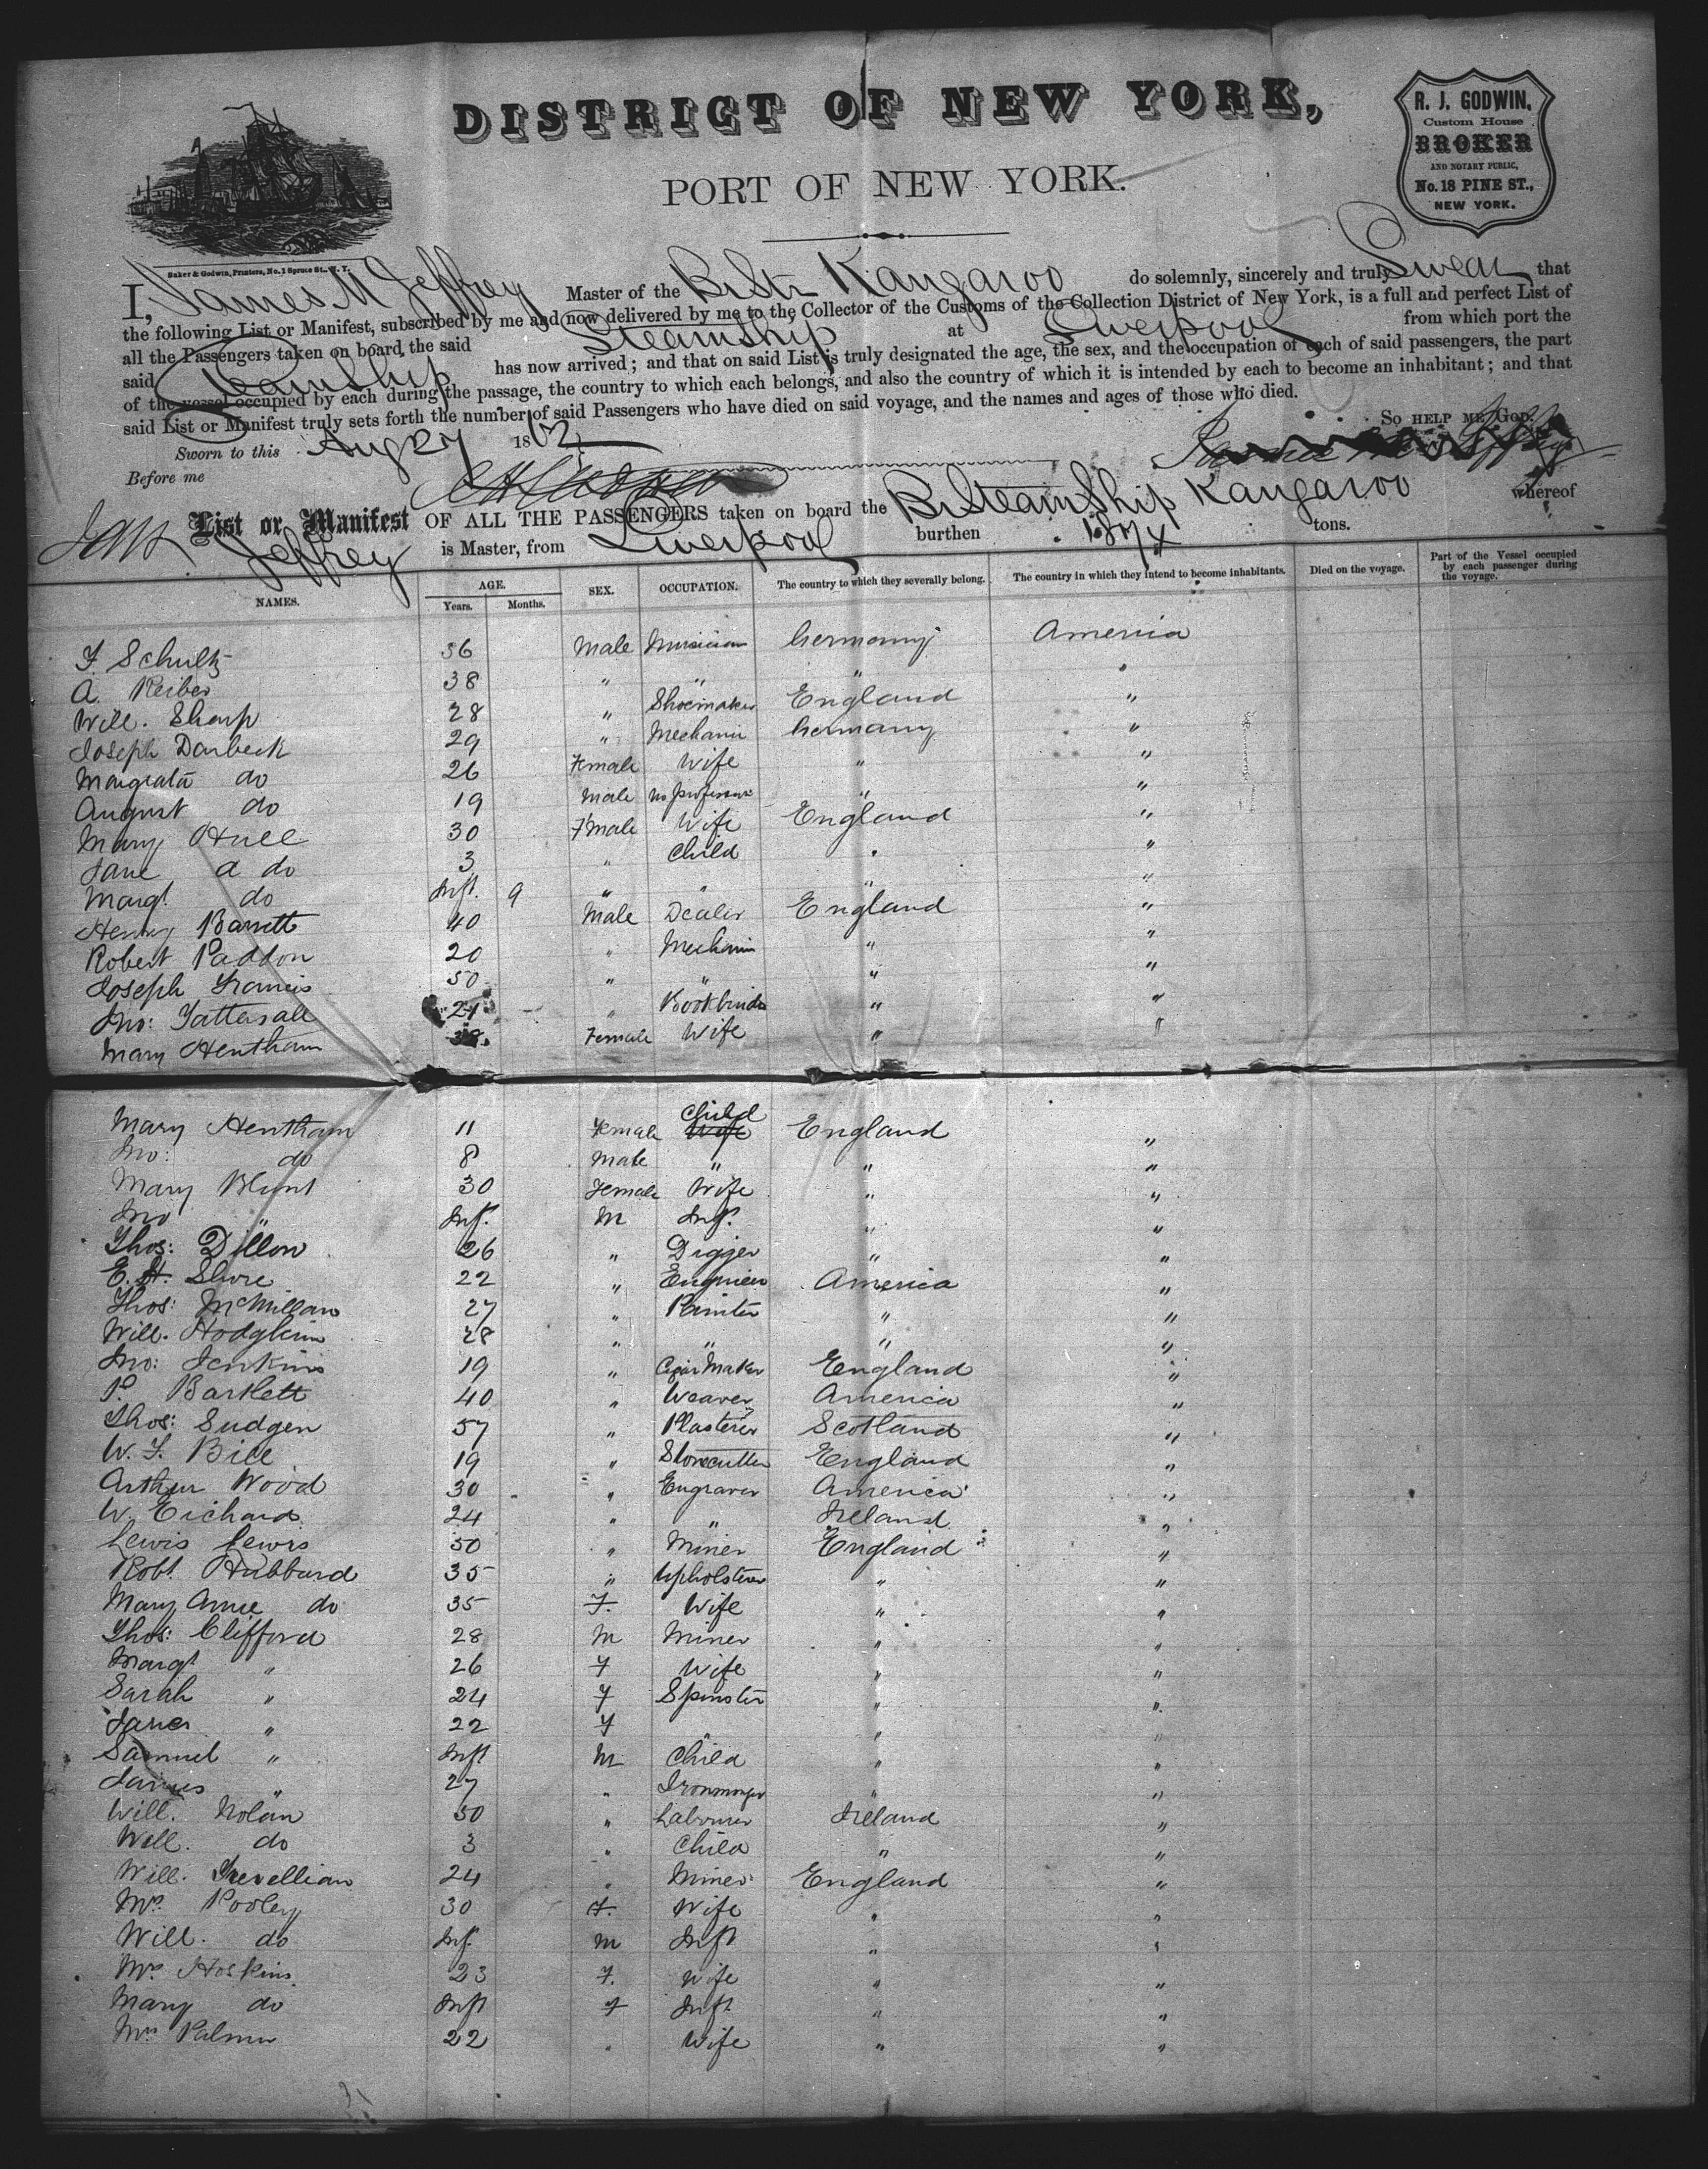 DISTRICT OF NEW YORK,
PORT OF NEW YORK.
R. J. GODWIN,
Custom House
BROKER
AND NOTARY PUBLIC,
No. 18 PINE ST.,
NEW YORK.
Baker & Godwin, Printers, No. 1 Spruce St., N. Y.
I, James M Jeffrey Master of the Br Str Kangaroo do solemnly, sincerely and truly Swear that
the following List or Manifest, subscribed by me and now delivered by me to the Collector of the Customs of the Collection District of New York, is a full and perfect List of
all the Passengers taken on board the said Steamship at Liverpool from which port the
said Steamship has now arrived; and that on said List is truly designated the age, the sex, and the occupation of each of said passengers, the part
of the vessel occupied by each during the passage, the country to which each belongs, and also the country of which it is intended by each to become an inhabitant; and that
said List or Manifest truly sets forth the number of said Passengers who have died on said voyage, and the names and ages of those who died.
So HELP ME GOD.
Sworn to this Aug 27 1862
Before me
List or Manifest OF ALL THE PASSENGERS taken on board the Br Steam Ship Kangaroo whereof
Jas Jeffrey is Master, from Liverpool burthen 1874 tons.
NAMES. AGE. Years. Months. SEX. OCCUPATION. The country to which they severally belong. The country in which they intend to become inhabitants. Died on the voyage. Part of the Vessel occupied by each passenger during the voyage.
F Schultz 36 Male Musician Germany America
A. Reiber 38 " " " "
Will. Sharp 28 " Shoemaker England "
Joseph Darbeck 29 " Mechanic Germany "
Margrata do 26 Female Wife " "
August do 19 Male No profession " "
Mary Hull 30 Fmale Wife England "
Jane A do 3 " Child " "
Margt do Inft. 9 " " " "
Henry Barrett 40 Male Dealer England "
Robert Paddon 20 " Mechanic " "
Joseph Francis 50 " " " "
Jno: Tattersall 21 " Bookbinder " "
Mary Hentham 38 Female Wife " "
Mary Hentham 11 Female Child England "
Jno: do 8 Male " " "
Mary Blunt 30 Female Wife " "
Jno " Inf. M Inf. " "
Thos: Dillon 26 " Digger " "
E. H. Shore 22 " Engineer America "
Thos: McMillan 27 " Painter " "
Will. Hodgkin 28 " " " "
Jno: Jenkins 19 " Cigar Maker England "
P. Bartlett 40 " Weaver America "
Thos: Sudgen 57 " Plasterer Scotland "
W. F. Bill 19 " Stonecutter England "
Arthur Wood 30 " Engraver America "
W. Eichard 24 " " Ireland "
Lewis Lewis 50 " Miner England "
Robt. Hubbard 35 " Upholsterer " "
Mary Anne do 35 F. Wife " "
Thos: Clifford 28 M Miner " "
Margt " 26 F Wife " "
Sarah " 24 F Spinster " "
Janes " 22 F " " "
Samuel " Inft M Child " "
James " 27 " Ironmonger " "
Will. Nolan 50 " Labourer Ireland "
Will. do 3 " Child " "
Will. Trevellian 24 " Miner England "
Mrs. Pooley 30 F. Wife " "
Will. do Inf. M Inft " "
Mrs. Hoskins 23 F. Wife " "
Mary do Inft F Inft. " "
Mrs. Palmer 22 " Wife " "